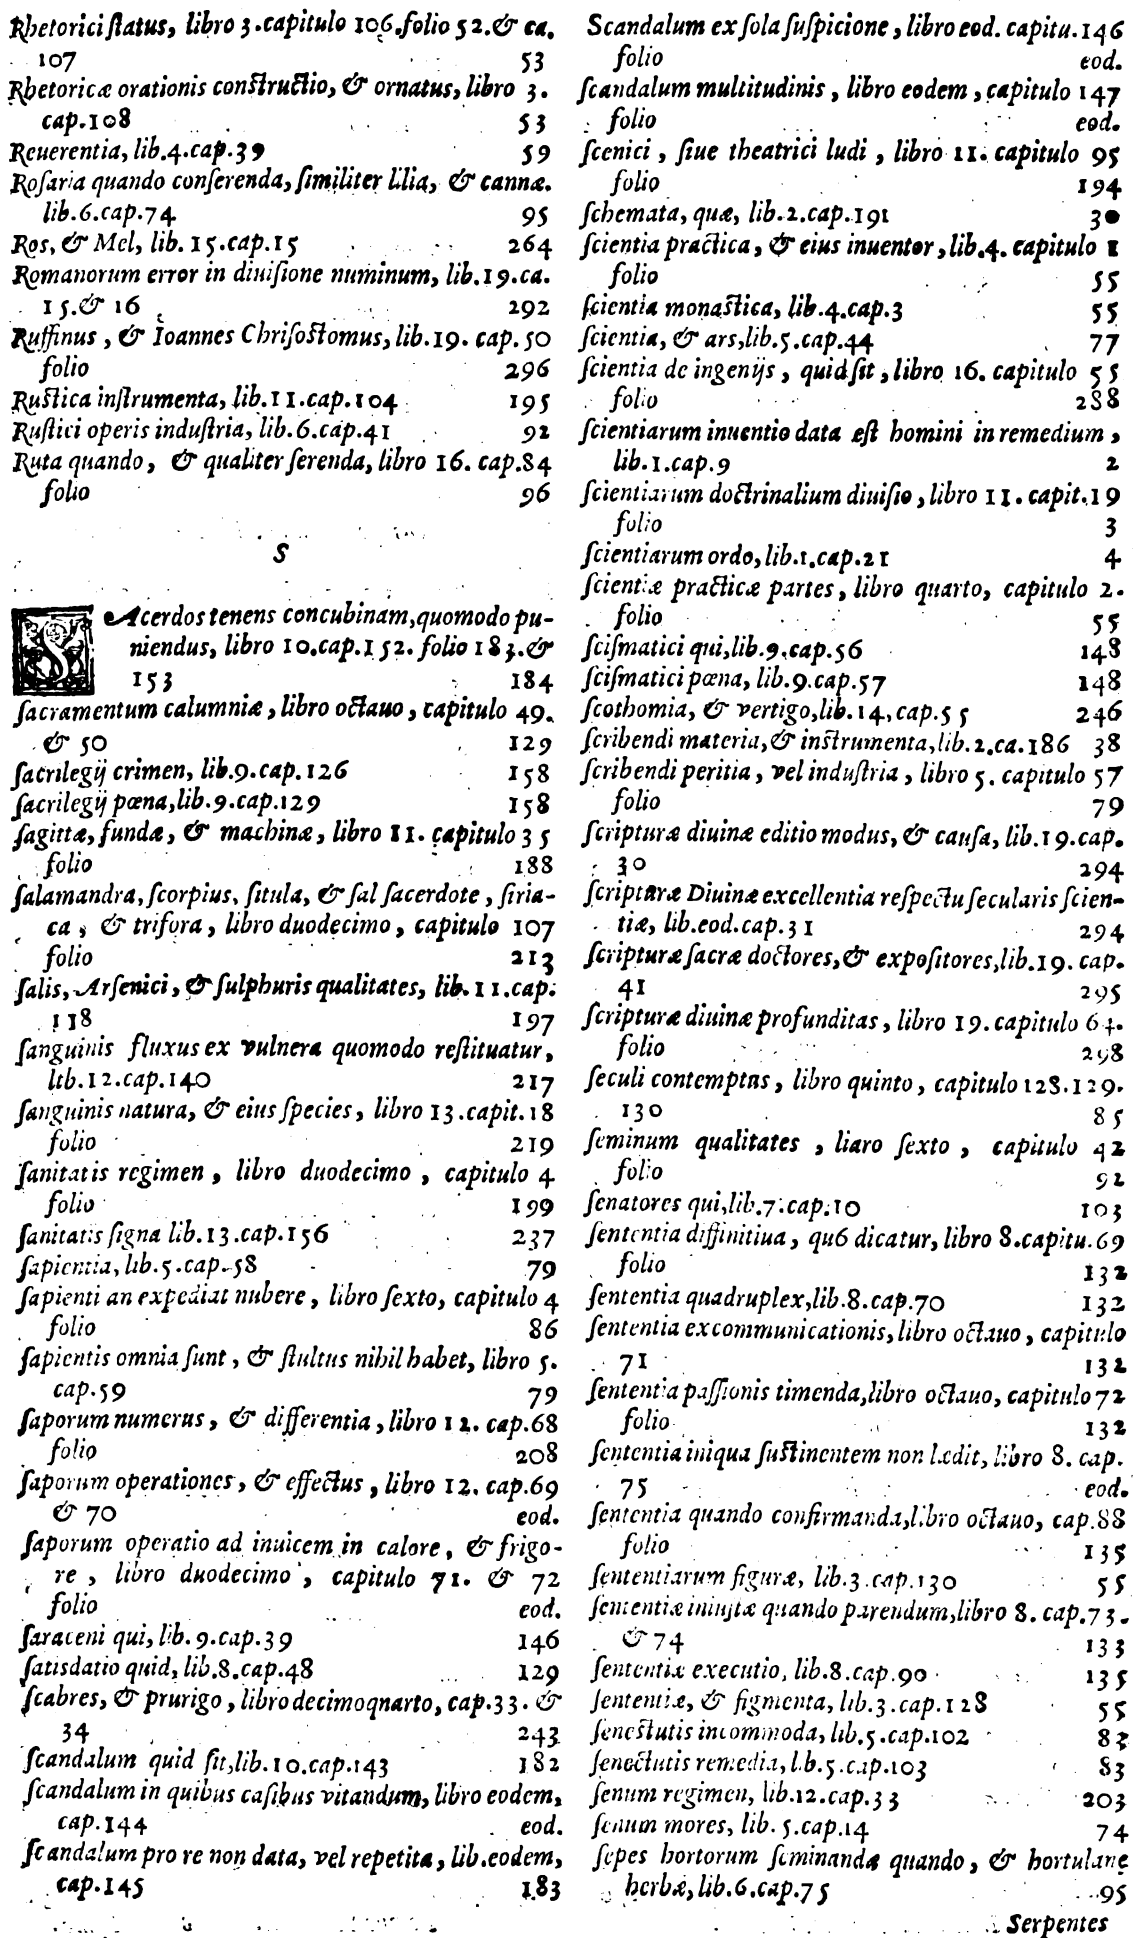 Rhetorici ſtatus, libro 3.capitulo 106.folio 52.& ca.
107 53
Rhetoricæ orationis conſtructio, & ornatus, libro 3.
cap.108 53
Reuerentia, lib.4.cap.39 59
Roſaria quando conſerenda, ſimiliter lilia, & cannæ.
lib.6.cap.74 95
Ros, & Mel, lib. 15.cap.15 264
Romanorum error in diuiſione numinum, lib.19.ca.
15.& 16 292
Ruffinus , & Ioannes Chriſoſtomus, lib.19. cap. 50
folio 296
Ruſtica inſtrumenta, lib.11.cap.104 195
Ruſtici operis induſtria, lib.6.cap.41 92
Ruta quando, & qualiter ſerenda, libro 16. cap.84
folio 96
S
SAcerdos tenens concubinam,quomodo pu-
niendus, libro 10.cap.152. folio 183.&
153 184
ſacramentum calumniæ , libro octauo , capitulo 49.
& 50 129
ſacrilegij crimen, lib.9.cap.126 158
ſacrilegij pœna,lib.9.cap.129 158
ſagittæ, fundæ, & machinæ, libro 11. capitulo 35
folio 188
ſalamandra, ſcorpius, ſitula, & ſal ſacerdote , ſiria-
ca , & trifora , libro duodecimo , capitulo 107
folio 213
ſalis, Arſenici , & ſulphuris qualitates, lib. 11.cap.
118 197
ſanguinis fluxus ex vulnera quomodo reſtituatur,
ltb.12.cap.140 217
ſanguinis natura, & eius ſpecies, libro 13.capit.18
folio 219
ſanitatis regimen , libro duodecimo , capitulo 4
folio 199
ſanitatis ſigna lib.13.cap.156 237
ſapientia, lib.5.cap.58 79
ſapienti an expediat nubere, libro ſexto, capitulo 4
folio 86
ſapientis omnia ſunt , & ſtultus nihil habet, libro 5.
cap.59 79
ſaporum numerus , & differentia , libro 12. cap.68
folio 208
ſaporum operationes , & effectus , libro 12. cap.69
& 70 eod.
ſaporum operatio ad inuicem in calore, & frigo-
re , libro duodecimo , capitulo 71. & 72
folio eod.
ſaraceni qui, lib. 9.cap.39 146
ſatisdatio quid, lib.8.cap.48 129
ſcabres, & prurigo , libro decimoqnarto, cap.33. &
34 243
ſcandalum quid ſit,lib.10.cap.143 182
ſcandalum in quibus caſibus vitandum, libro eodem,
cap.144 eod.
ſcandalum pro re non data, vel repetita, lib.eodem,
cap.145 183
Scandalum ex ſola ſuſpicione , libro eod. capitu.146
folio eod.
ſcandalum multitudinis , libro eodem , capitulo 147
folio eod.
ſcenici , ſiue theatrici ludi , libro 11. capitulo 95
folio 194
ſchemata, quæ, lib.2.cap.191 30
ſcientia practica, & eius inuentor , lib.4. capitulo 1
folio 55
ſcientia monaſtica, lib.4.cap.3 55
ſcientia, & ars,lib.5.cap.44 77
ſcientia de ingenijs , quid ſit , libro 16. capitulo 55
folio 288
ſcientiarum inuentio data eſt homini in remedium ,
lib.1.cap.9 2
ſcientiarum doctrinalium diuiſio , libro 11. capit.19
folio 3
ſcientiarum ordo, lib.1.cap.21 4
ſcientiæ practicæ partes , libro quarto, capitulo 2.
folio 55
ſciſmatici qui,lib.9.cap.56 148
ſciſmatici pœna, lib.9.cap.57 148
ſcothomia, & vertigo,lib.14.cap.55 246
ſcribendi materia,& inſtrumenta,lib.2.ca.186 38
ſcribendi peritia , vel induſtria , libro 5. capitulo 57
folio 79
ſcripturæ diuinæ editio modus, & cauſa, lib.19.cap.
30 294
ſcripturæ Diuinæ excellentia reſpectu ſecularis ſcien-
tiæ, lib.eod.cap.31 294
ſcripturæ ſacræ doctores, & expoſitores,lib.19. cap.
41 295
ſcripturæ diuinæ profunditas , libro 19.capitulo 64.
folio 298
ſeculi contemptns , libro quinto , capitulo 128.129.
130 85
ſeminum qualitates , liaro ſexto , capitulo 42
folio 92
ſenatores qui,lib.7.cap.10 103
ſententia diffinitiua , qu6 dicatur, libro 8.capitu.69
folio 132
ſententia quadruplex,lib.8.cap.70 132
ſententia excommunicationis, libro octauo , capitulo
71 132
ſententia paſſionis timenda,libro octauo, capitulo 72
folio 132
ſententia iniqua ſuſtinentem non lædit, libro 8. cap.
75 eod.
ſententia quando confirmanda,libro octauo, cap.88
folio 135
ſententiarum figuræ, lib.3.cap.130 55
ſententiæ iniuſtæ quando parendum,libro 8. cap.73.
& 74 133
ſententiæ executio, lib.8.cap.90 135
ſententiæ, & figmenta, lib.3.cap.128 55
ſeneſtutis incommoda, lib.5.cap.102 83
ſenectutis remedia, lib.5.cap.103 83
ſenum regimen, lib.12.cap.33 203
ſenum mores, lib. 5.cap.14 74
ſepes hortorum ſeminandæ quando , & hortulanę
herbæ, lib.6.cap.75 95
Serpentes